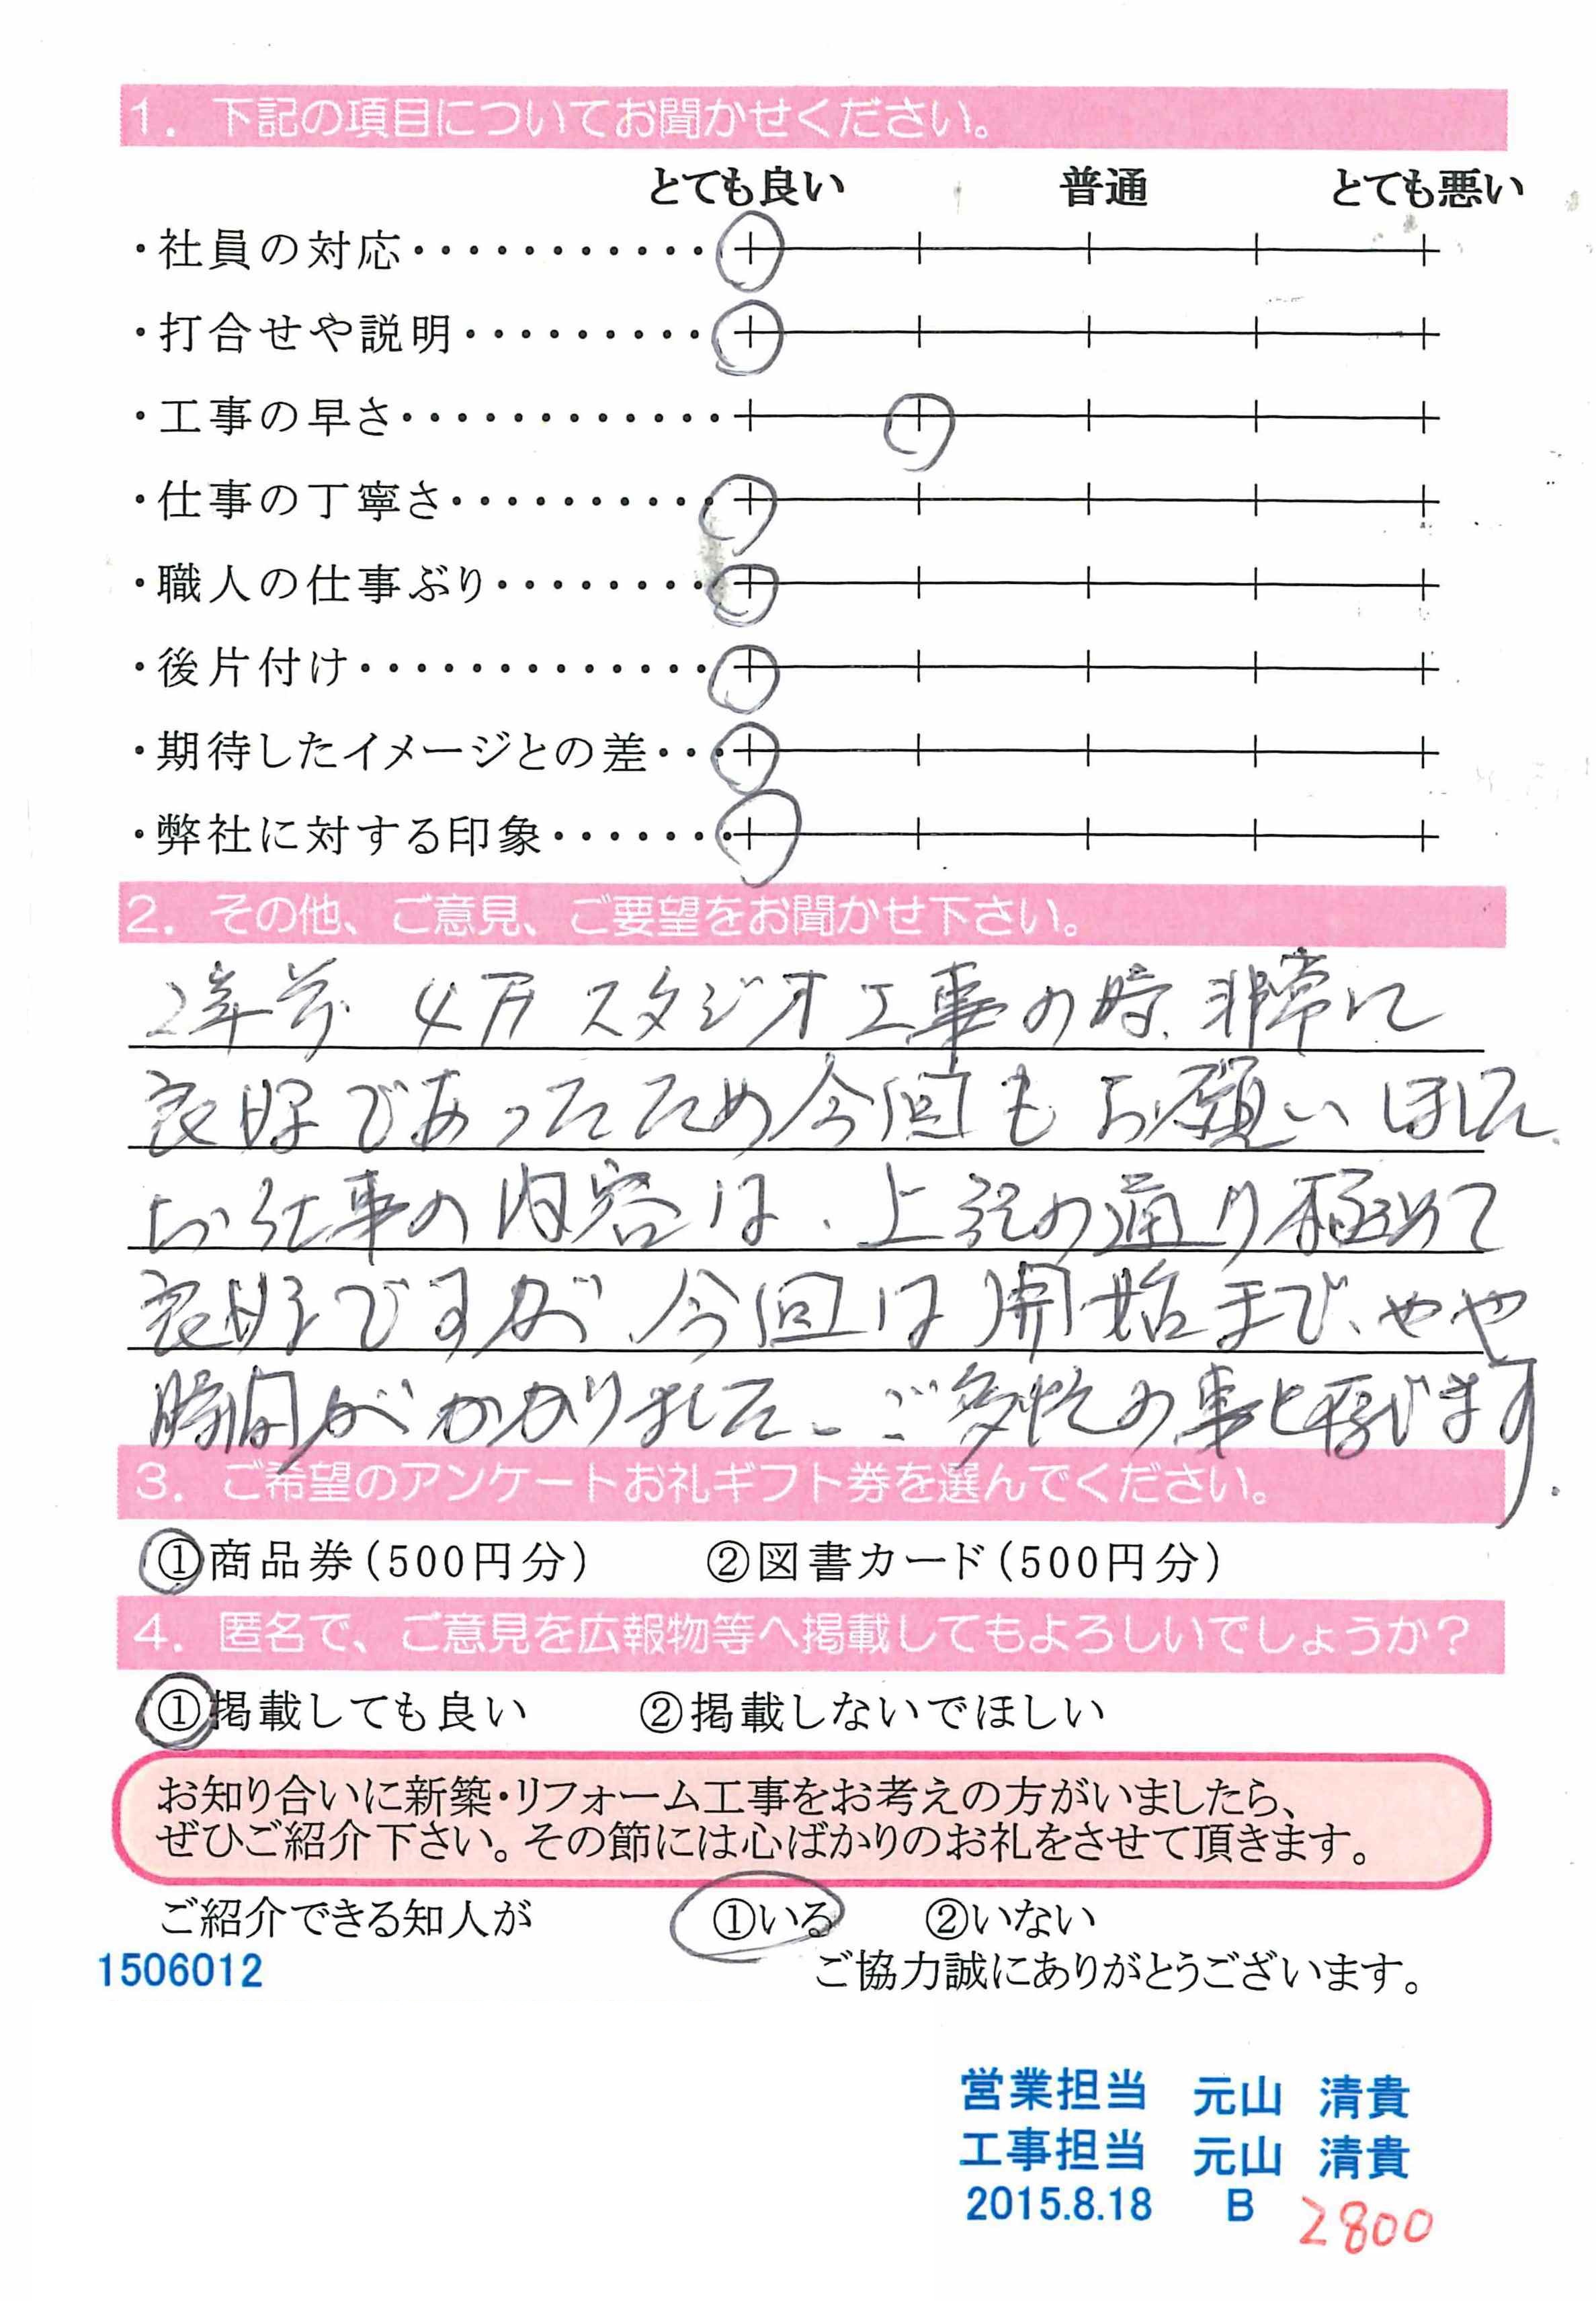 1. 下記の項目についてお聞かせください。
とても良い 普通 とても悪い
・社員の対応・・・・・・・・・・・・
・打合せや説明・・・・・・・・・・
・工事の早さ・・・・・・・・・・・・・
・仕事の丁寧さ・・・・・・・・・・・
・職人の仕事ぶり・・・・・・・・・
・後片付け・・・・・・・・・・・・・・
・期待したイメージとの差・・・
・弊社に対する印象・・・・・・・
2. その他、ご意見、ご要望をお聞かせ下さい。
2年前 スタジオ工事の時、非常に
良好であったため今回もお願いしました。
お仕事の内容は、上記の通り極めて
良好ですが、今回は開始まで、やや
時間がかかりました。ご多忙の事と存じます。
3. ご希望のアンケートお礼ギフト券を選んでください。
①商品券(500円分) ②図書カード(500円分)
4. 匿名で、ご意見を広報物等へ掲載してもよろしいでしょうか?
①掲載しても良い ②掲載しないでほしい
お知り合いに新築・リフォーム工事をお考えの方がいましたら、
ぜひご紹介下さい。その節には心ばかりのお礼をさせて頂きます。
ご紹介できる知人が ①いる ②いない
1506012 ご協力誠にありがとうございます。
営業担当 元山 清貴
工事担当 元山 清貴
2015.8.18 B 2800